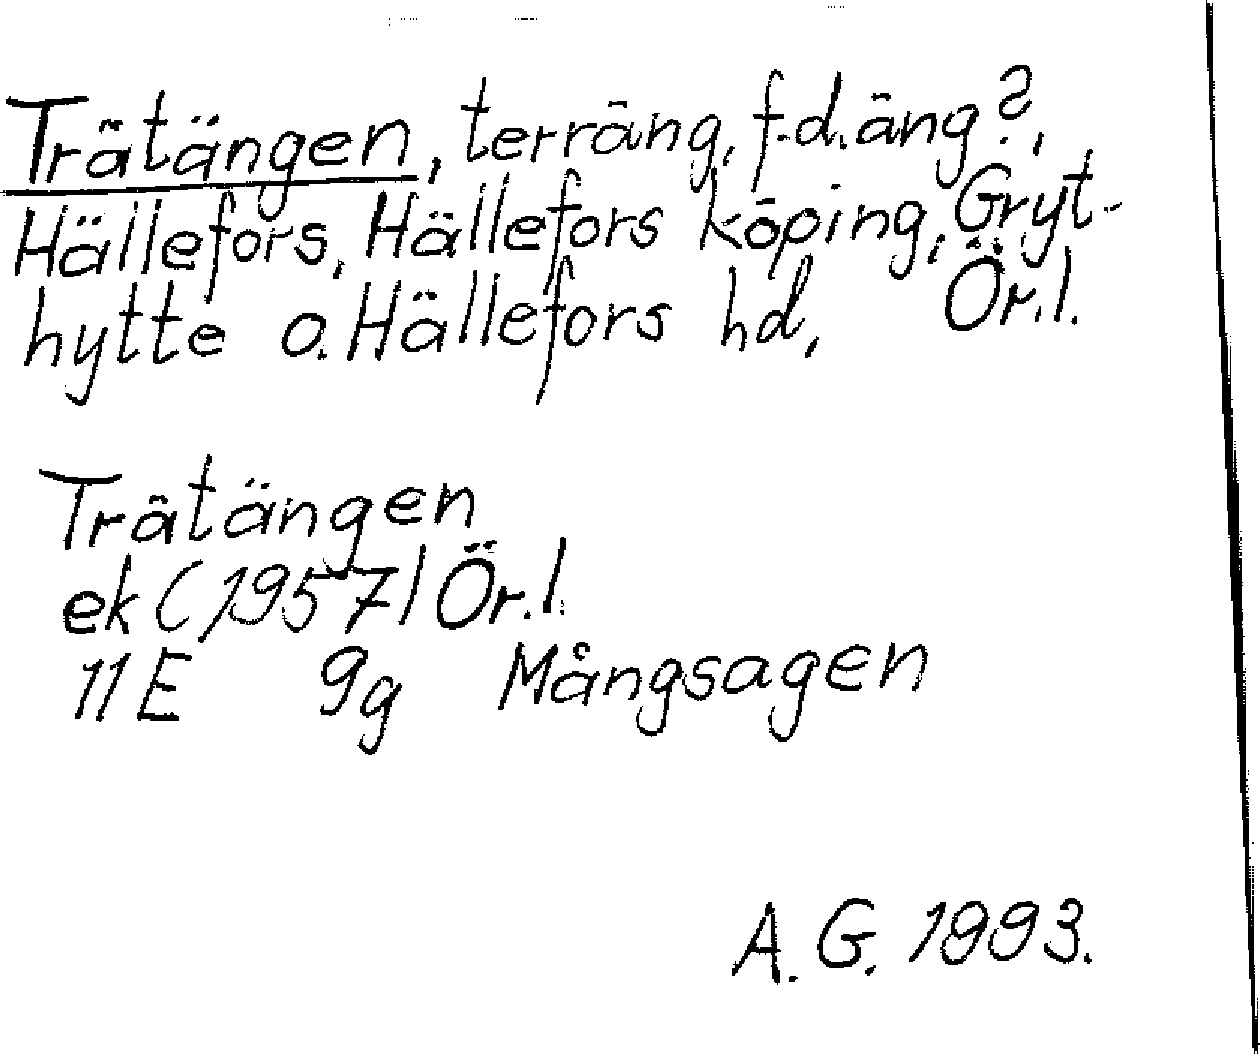 Trätängen, terräng, f.d. äng?,
Hällefors, Hällefors köping, Gryt-
hytte o. Hällefors hd, Ör.l.
Trätängen
ek (1957) Ör.l.
11 E 9g Mångsagen
A. G. 1993.